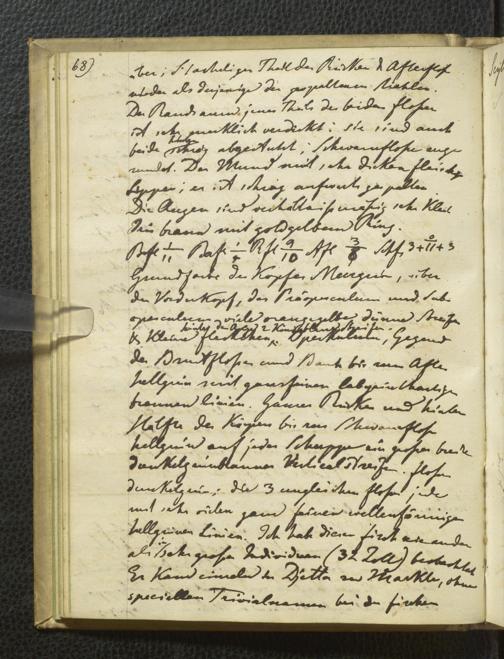 68)
über; Stacheliger Theil der Rücken & Afterflosse
nieder als derjenige der gespaltenen Strahlen.
Der Rand jenes Theils der beiden Flossen
ist sehr merklich verdeckt; sie sind auch
beide hinten schräg abgestutzt; Schwanzflosse abge
rundet. Der Mund mit sehr dicken fleischigen
Lippen; er ist schräg aufwärts gespalten.
Die Augen sind verhältnissmässig sehr klein
Iris braun mit goldgelbem Ring.
Brfl. 1/11 Bafl. 1/5 Rfl. 9/10 Afl. 3/8 Schfl. 3+11+3
Grundfarbe des Kopfes Meergrün, über
den Vorderkopf, das Präoperculum und Sub
operculum viele orangegelbe dünne Streifen
hinter den Augen 2
& kleine Fleckchen; Operkulum, Gegend
der Brustflossen und Bauch bis zum After
hellgrün mit ganz feinen labyrinthartigen
braunen Linien. Ganzer Rücken und hintere
Hälfte des Körpers bis zur Schwanzflosse
hellgrün auf jeder Schuppe ein grosser breiter
dunkelgrünbrauner Verticalstreifen. Flossen
dunkelgrün; die 3 ungleichen Flossen jede
mit sehr vielen ganz feinen wellenförmigen
hellgrünen Linien. Ich hab diesen Fisch nie anders
als in sehr grossen Individuen (32 Zoll) beobachtet
Er kam einzeln in Djetta zu Markte, ohne
speciellen Trivialnamen bei den Fischern